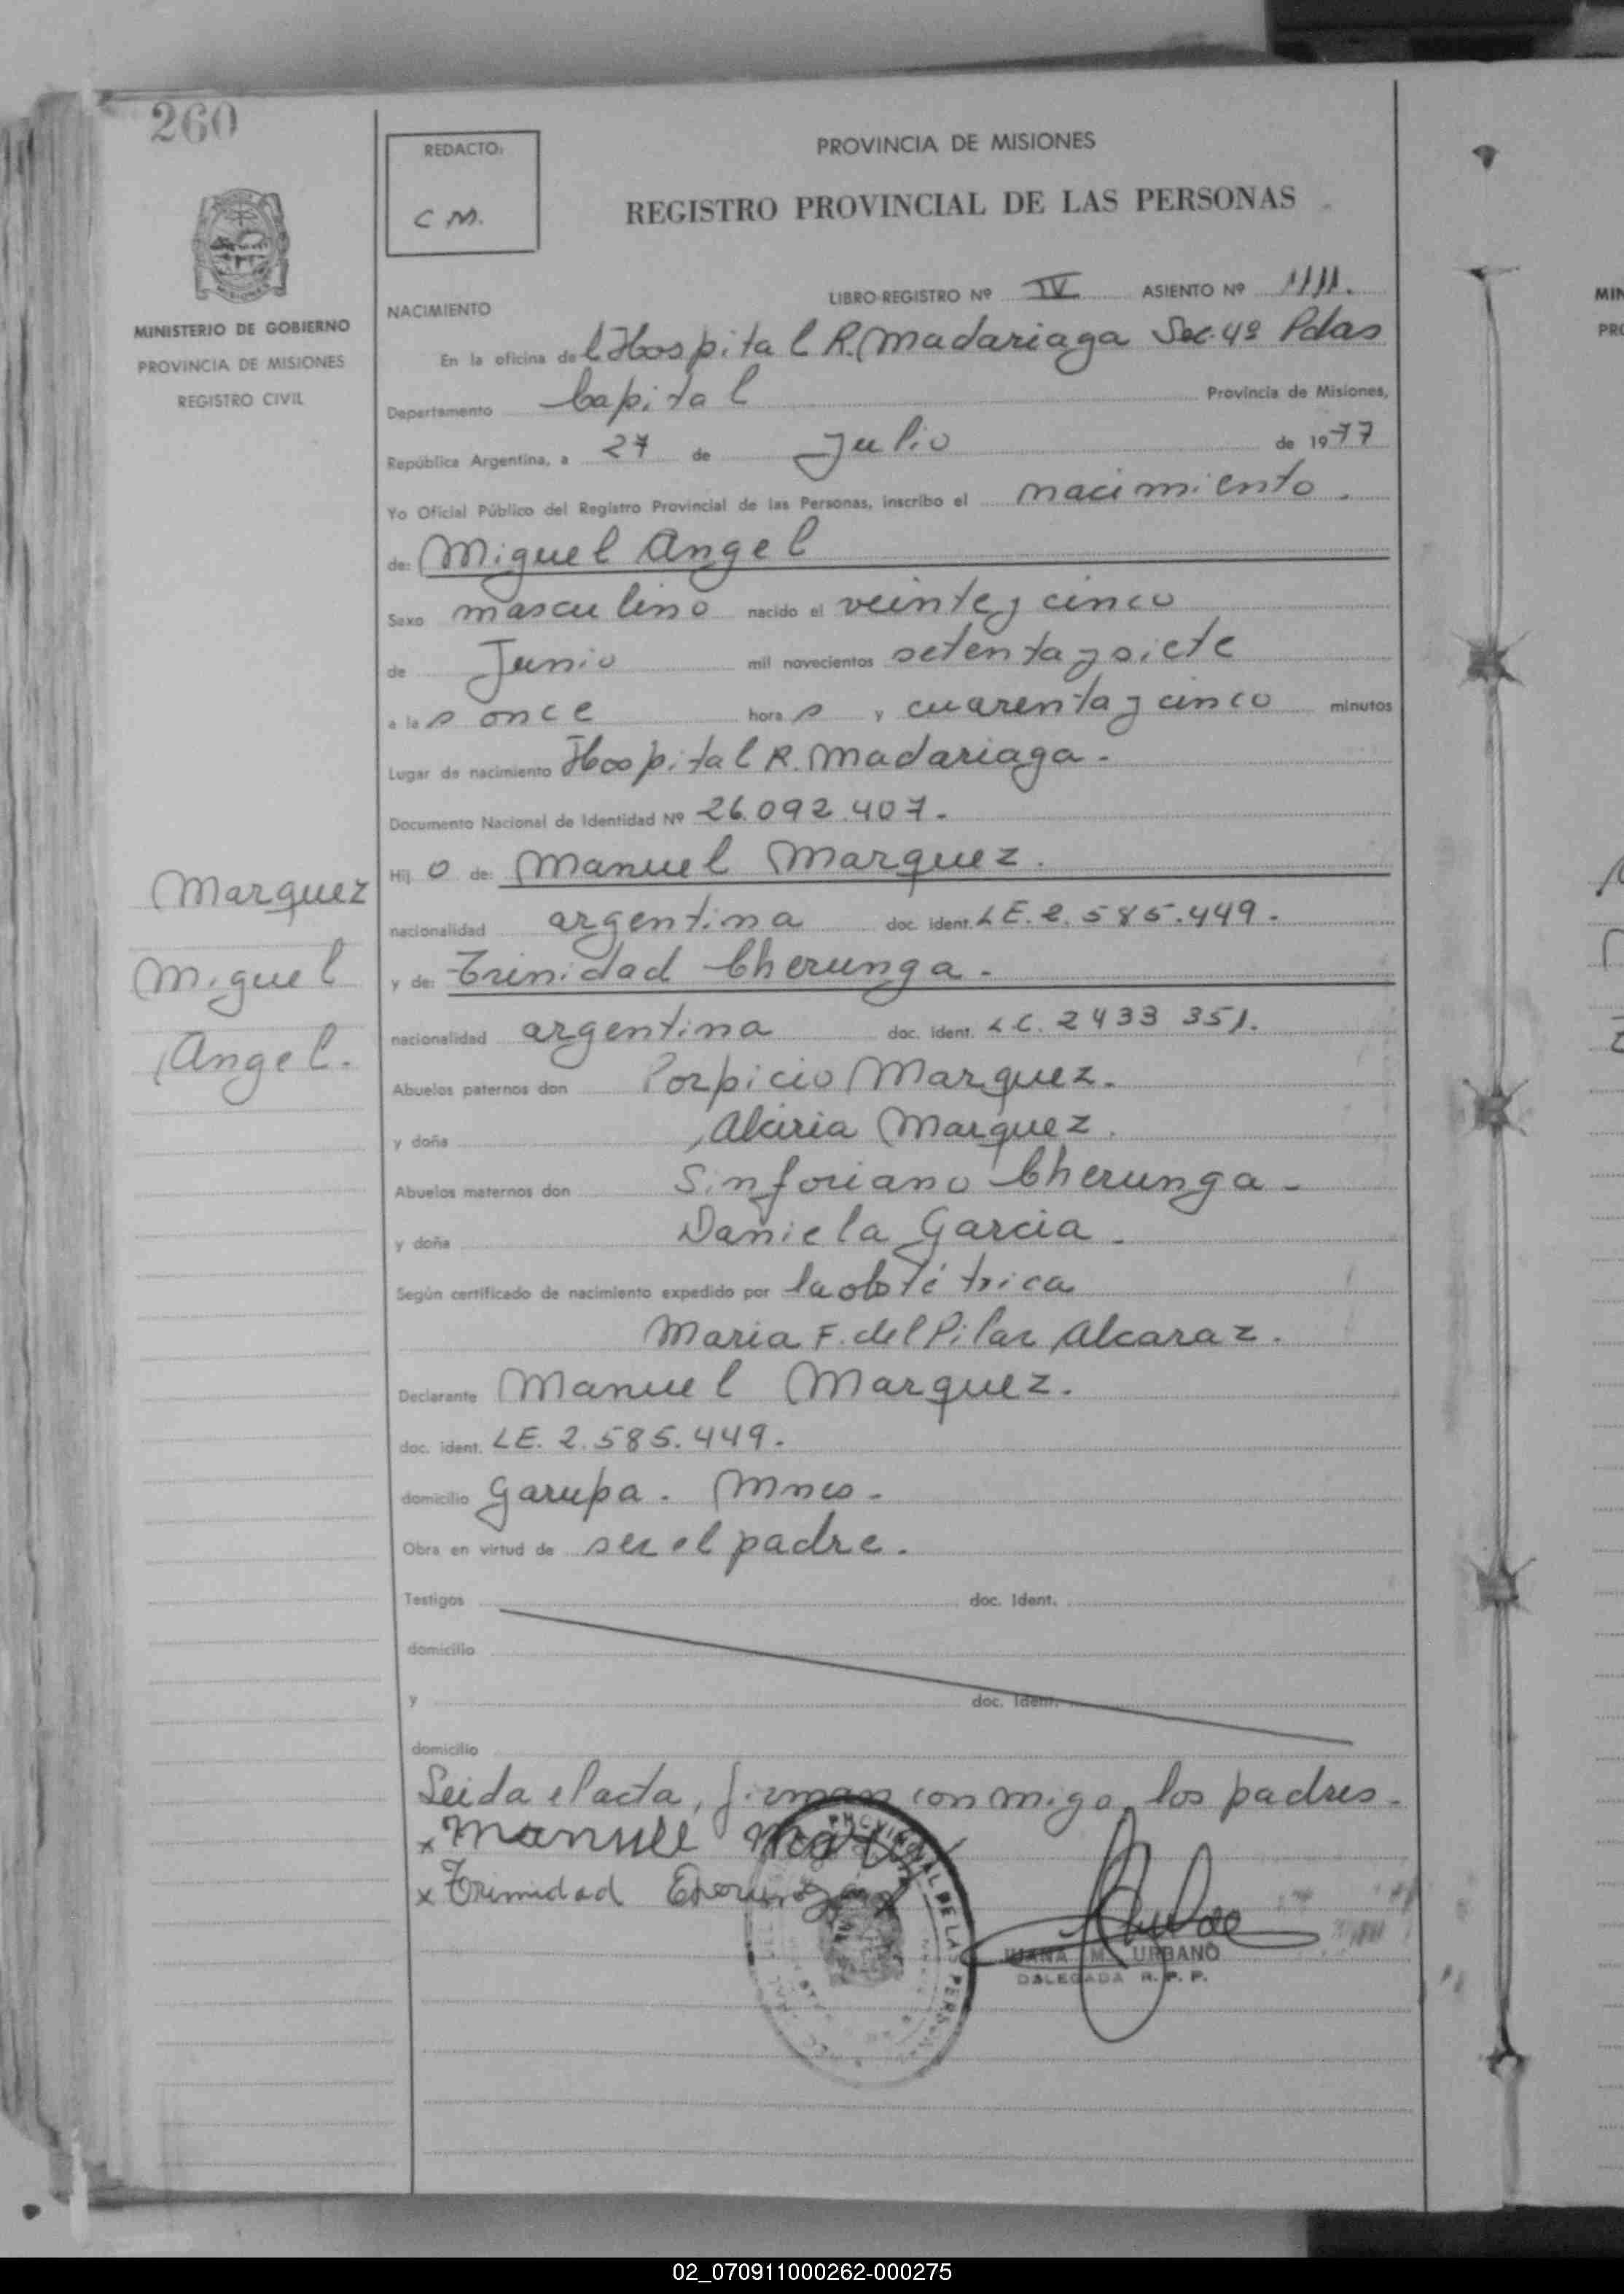 260
REDACTO:
C M.
PROVINCIA DE MISIONES
REGISTRO PROVINCIAL DE LAS PERSONAS
MINISTERIO DE GOBIERNO
PROVINCIA DE MISIONES
REGISTRO CIVIL
LIBRO-REGISTRO Nº IV ASIENTO Nº 1111.
NACIMIENTO
En la oficina de l Hospital R. Madariaga Sec. 4º Pdas
Departamento Capital Provincia de Misiones,
República Argentina, a 27 de Julio de 1977
Yo Oficial Público del Registro Provincial de las Personas, inscribo el nacimiento.
de: Miguel Angel
Sexo masculino nacido el veinte y cinco
de Junio mil novecientos setenta y siete
a las once horas y cuarenta y cinco minutos
Lugar de nacimiento Hospital R. Madariaga.
Documento Nacional de Identidad Nº 26.092.407.
Hijo de: Manuel Marquez.
nacionalidad argentina doc. ident. LE. 2.585.449.
y de: Trinidad Cherunga.
nacionalidad argentina doc. ident. LC. 2433 351.
Marquez
Miguel
Angel.
Abuelos paternos don Porpicio Marquez.
y doña Alciria Marquez.
Abuelos maternos don Sinforiano Cherunga.
y doña Daniela Garcia.
Según certificado de nacimiento expedido por la obstétrica
Maria F. del Pilar Alcaraz.
Declarante Manuel Marquez.
doc. ident. LE. 2.585.449.
domicilio Garupa. Mnes.
Obra en virtud de ser el padre.
Testigos doc. ident.
domicilio
y doc. ident.
domicilio
Leida el acta, firman conmigo los padres.
x Manuel
x Trinidad Cherunga
PROVINCIAL DE LAS PERSONAS
JUANA M. URBANO
DELEGADA R. P. P.
02_070911000262-000275